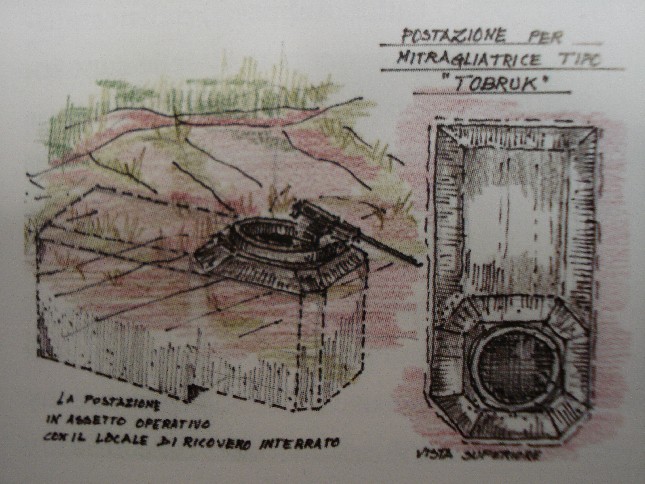 POSTAZIONE PER
MITRAGLIATRICE TIPO
"TOBRUK"
LA POSTAZIONE
IN ASSETTO OPERATIVO
CON IL LOCALE DI RICOVERO INTERRATO
VISTA SUPERIORE